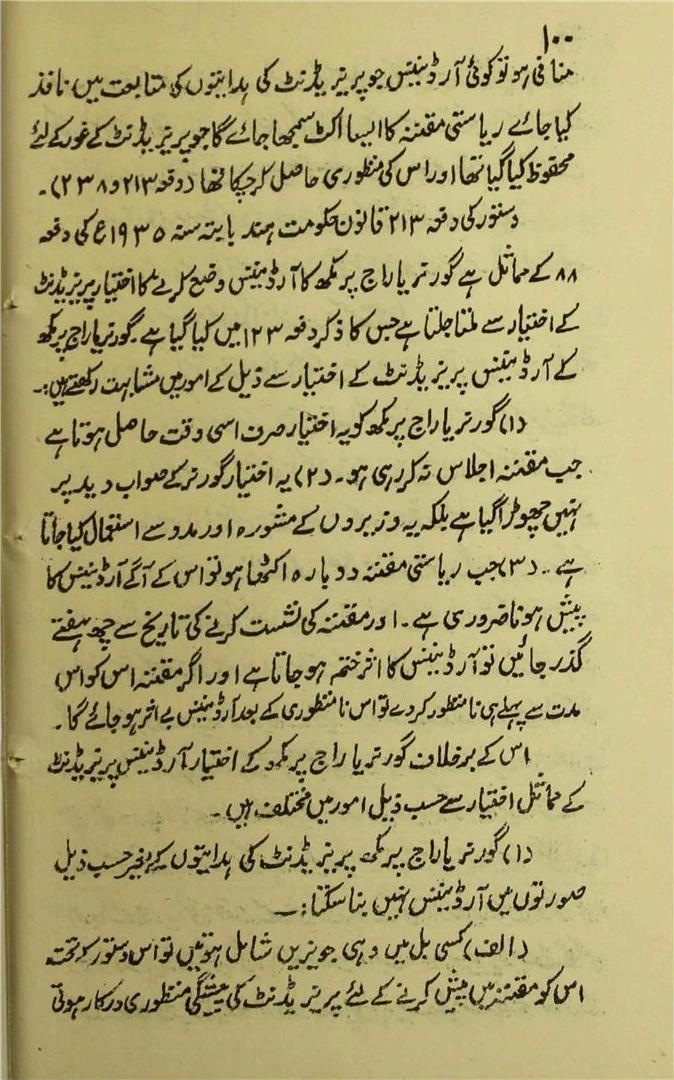 ۱۰۰
منافی ہو تو کوئی آرڈیننس جو پریزیڈنٹ کی ہدایتوں کی متابعت میں نافذ
کیا جائے ریاستی مقننہ کا ایسا اکٹ سمجھا جائے گا جو پریزیڈنٹ کے غور کے لئے
محفوظ کیا گیا تھا اور اس کی منظوری حاصل کر چکا تھا (دفعہ ۲۱۳ و ۲۳۸)۔
دستور کی دفعہ ۲۱۳ قانون حکومت ہند بابتہ سنہ ۱۹۳۵ع کی دفعہ
۸۸ کے مماثل ہے گورنر یا راج پرمکھ کا آرڈیننس وضع کرنے کا اختیار پریزیڈنٹ
کے اختیار سے ملتا جلتا ہے جس کا ذکر دفعہ ۱۲۳ میں کیا گیا ہے۔ گورنر یا راج پرمکھ
کے آرڈیننس پریزیڈنٹ کے اختیار سے ذیل کے امور میں مشابہت رکھتے ہیں:۔
(۱) گورنر یا راج پرمکھ کو یہ اختیار صرف اسی وقت حاصل ہوتا ہے
جب مقننہ اجلاس نہ کر رہی ہو۔ (۲) یہ اختیار گورنر کے صواب دید پر
نہیں چھوڑا گیا ہے بلکہ یہ وزیروں کے مشورہ اور مدد سے استعمال کیا جاتا
ہے۔ (۳) جب ریاستی مقننہ دوبارہ اکٹھا ہو تو اس کے آگے آرڈیننس کا
پیش ہونا ضروری ہے۔ اور مقننہ کی نشست کرنے کی تاریخ سے چھ ہفتے
گذر جائیں تو آرڈیننس کا اثر ختم ہو جاتا ہے اور اگر مقننہ اس کو اس
مدت سے پہلے ہی نا منظور کر دے تو اس نا منظوری کے بعد آرڈیننس بے اثر ہو جائے گا۔
اس کے برخلاف گورنر یا راج پرمکھ کے اختیار آرڈیننس پریزیڈنٹ
کے مماثل اختیار سے حسب ذیل امور میں مختلف ہیں۔
(۱) گورنر یا راج پرمکھ پریزیڈنٹ کی ہدایتوں کے بغیر حسب ذیل
صورتوں میں آرڈیننس نہیں بنا سکتا:۔
(الف) کسی بل میں وہی تجویزیں شامل ہوتیں تو اس دستور کے تحت
اس کو مقننہ میں پیش کرنے کے لئے پریزیڈنٹ کی پیشگی منظوری درکار ہوتی